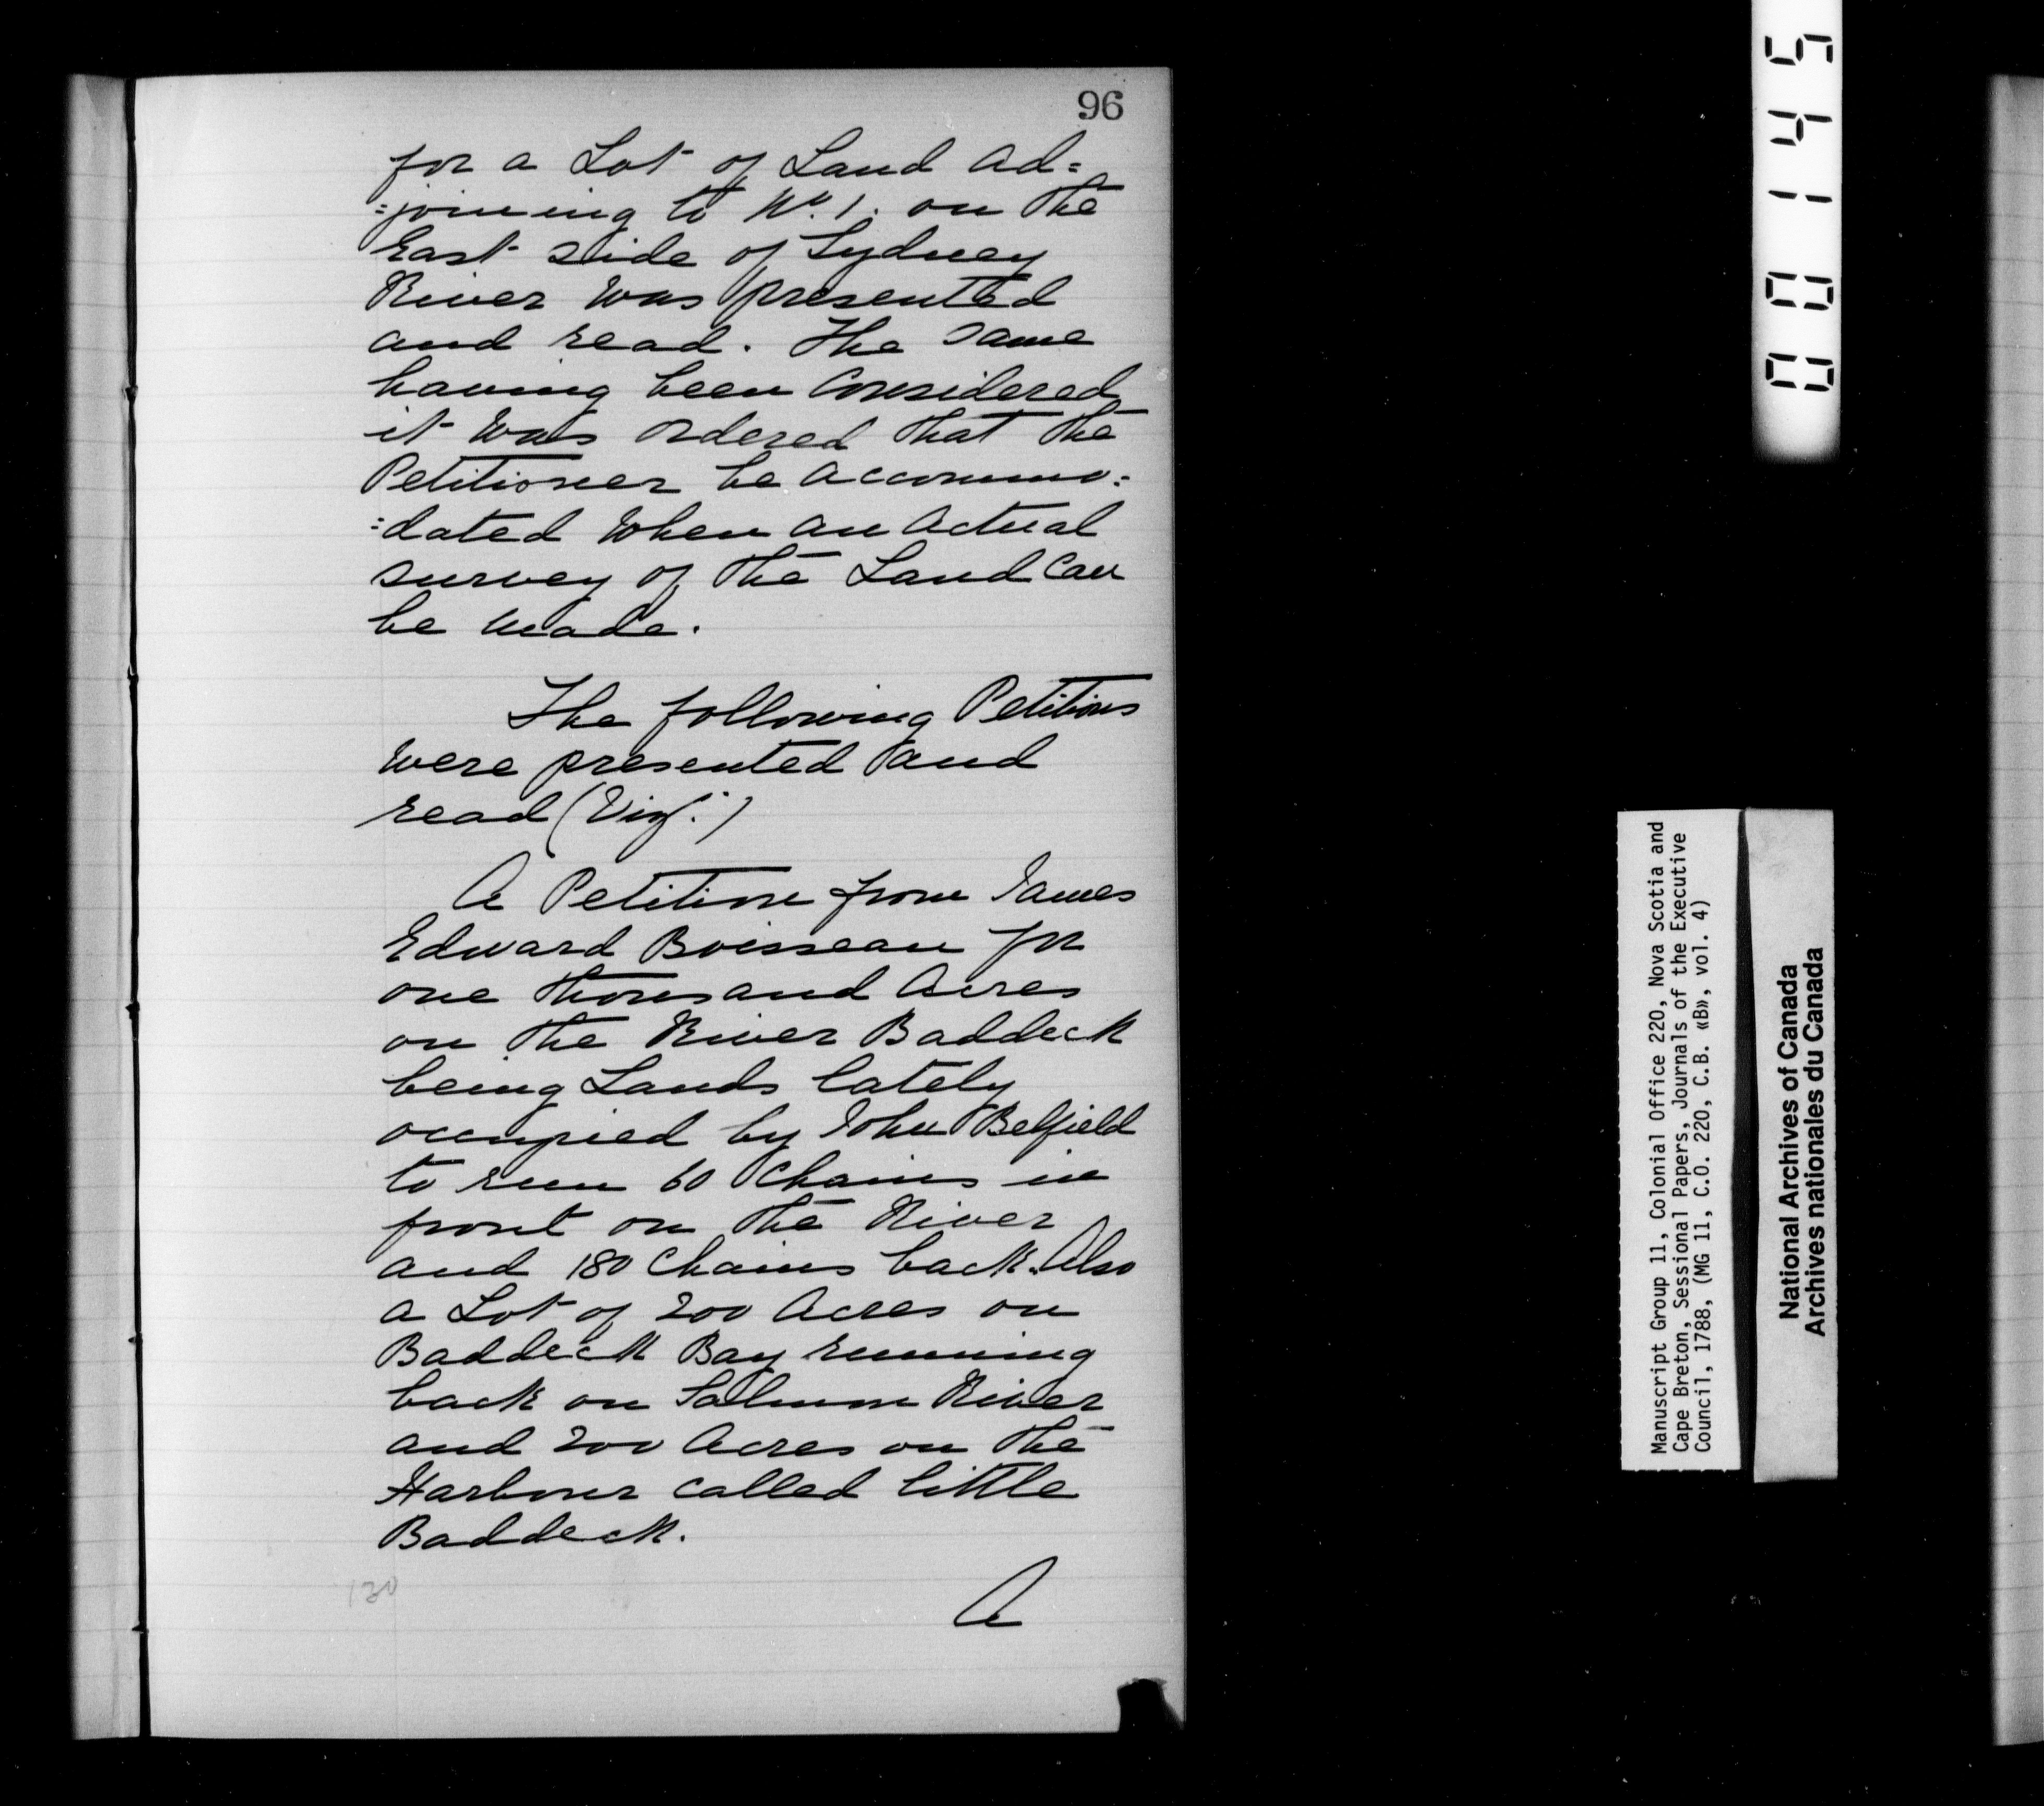 96
for a Lot of Land ad=
=joining to No. 1. on the
East side of Sydney
River was presented
and read. The same
having been Considered
it was ordered that the
Petitioner be accommo:
:dated when an actual
survey of the Land Can
be made.
The following Petitions
were presented and
read (Viz:)
A Petition from James
Edward Boisseau for
one thousand Acres
on the River Baddeck
being Lands lately
occupied by John Belfield
to run 60 Chains in
front on the River
and 180 Chains back. Also
a Lot of 200 Acres on
Baddeck Bay running
back on Salmon River
and 200 Acres on the
Harbour called little
Baddeck.
130
A
00145
Manuscript Group 11, Colonial Office 220, Nova Scotia and
Cape Breton, Sessional Papers, Journals of the Executive
Council, 1788, (MG 11, C.O. 220, C.B. «B», vol. 4)
National Archives of Canada
Archives nationales du Canada